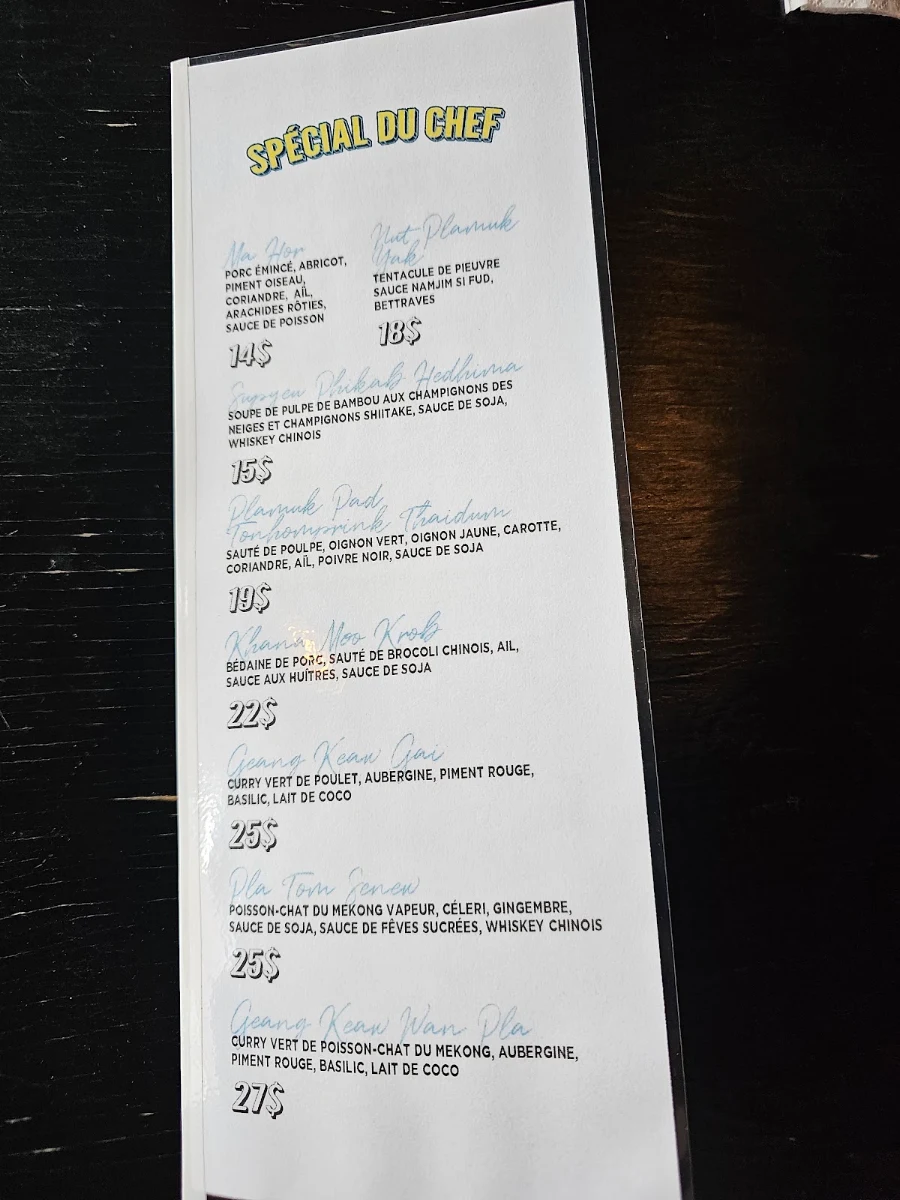 SPÉCIAL DU CHEF
Ma Hor
PORC ÉMINCÉ, ABRICOT,
PIMENT OISEAU,
CORIANDRE, AÏL,
ARACHIDES RÔTIES,
SAUCE DE POISSON
14$
Nut Plamuk
Yak
TENTACULE DE PIEUVRE
SAUCE NAMJIM SI FUD,
BETTRAVES
18$
Supyeu Phikab Hedhima
SOUPE DE PULPE DE BAMBOU AUX CHAMPIGNONS DES
NEIGES ET CHAMPIGNONS SHIITAKE, SAUCE DE SOJA,
WHISKEY CHINOIS
15$
Plamuk Pad
Tonhomprink Thaidum
SAUTÉ DE POULPE, OIGNON VERT, OIGNON JAUNE, CAROTTE,
CORIANDRE, AÏL, POIVRE NOIR, SAUCE DE SOJA
19$
Khana Moo Krob
BÉDAINE DE PORC, SAUTÉ DE BROCOLI CHINOIS, AIL,
SAUCE AUX HUÎTRES, SAUCE DE SOJA
22$
Geang Keaw Gai
CURRY VERT DE POULET, AUBERGINE, PIMENT ROUGE,
BASILIC, LAIT DE COCO
25$
Pla Tom Senew
POISSON-CHAT DU MEKONG VAPEUR, CÉLERI, GINGEMBRE,
SAUCE DE SOJA, SAUCE DE FÊVES SUCRÉES, WHISKEY CHINOIS
25$
Geang Keaw Wan Pla
CURRY VERT DE POISSON-CHAT DU MEKONG, AUBERGINE,
PIMENT ROUGE, BASILIC, LAIT DE COCO
27$